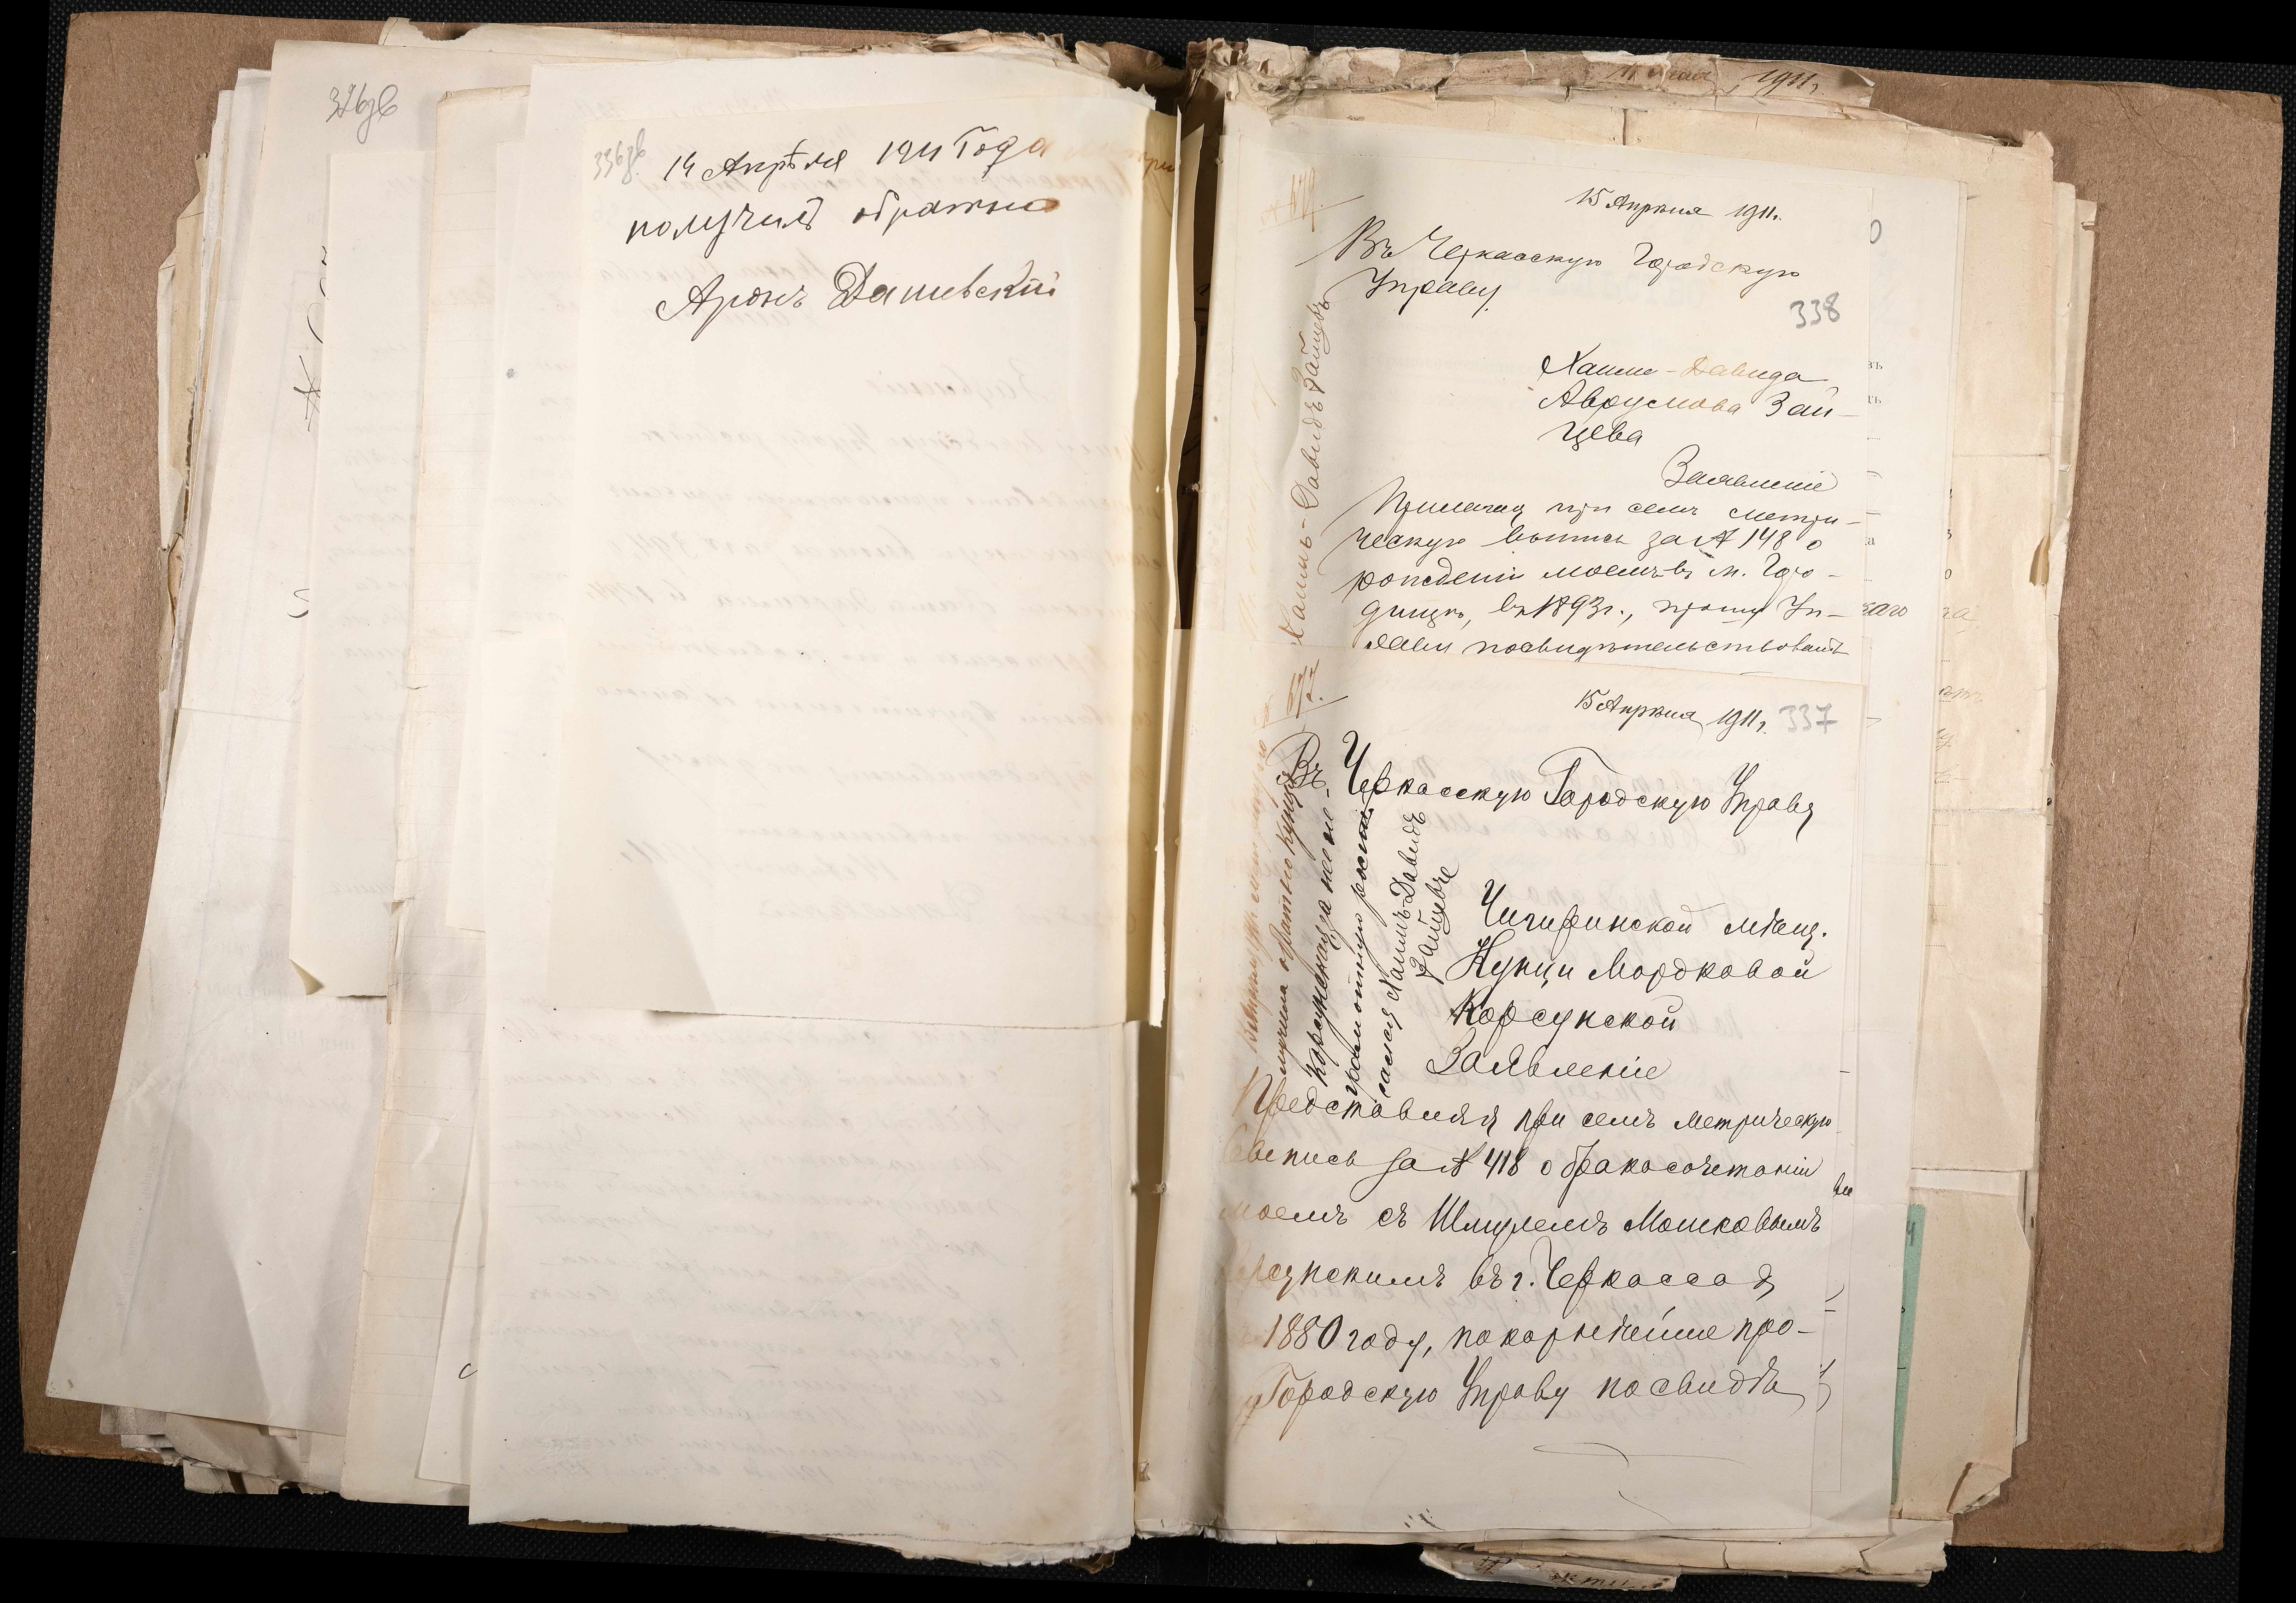 336зв.
14 Апрѣля 1911 Года
получилъ обратно
Аронъ Дашевскій
1911 г.
15 Апрѣля 1911 г.
Въ Черкасскую Городскую
Управу
338
Хаима-Давида
Аврумова Зай-
цева
Заявленіе
Прилагая при семъ метри-
ческую выпись за № 148 о
рожденіи моемъ въ м. Горо-
дищѣ, въ 1893 г., прошу Уп-
раву посвидѣтельствовать
Хаимъ-Давидъ Зайцевъ
677.
15 Апрѣля 1911 г. 337
Въ Черкасскую Городскую Управу
Чигиринской мѣщ.
Кунци Мордковой
Корсунской
Заявленіе
Представляя при семъ метрическую
выпись за № 418 о бракосочетаніи
моемъ съ Шмулемъ Мошковымъ
Корсунскимъ въ г. Черкассахъ
1880 году, покорнѣйше про-
шу Городскую Управу посвидѣ
получила обратно Кунця
Корсунская за не-
грамотную расписался
Хаимъ-Давидъ
Зайцевъ